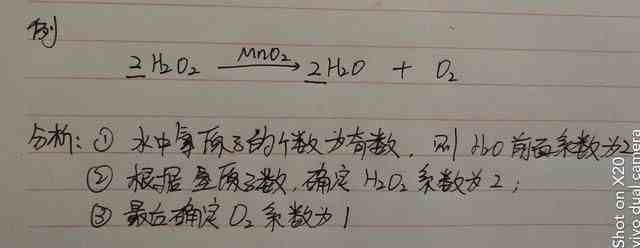 例
2H₂O₂ MnO₂→ 2H₂O + O₂
分析：① 水中氧原子的个数为奇数，则 H₂O 前面系数为2
② 根据氢原子数，确定 H₂O₂ 系数为 2；
③ 最后确定 O₂ 系数为 1
Shot on X20
vivo dual camera